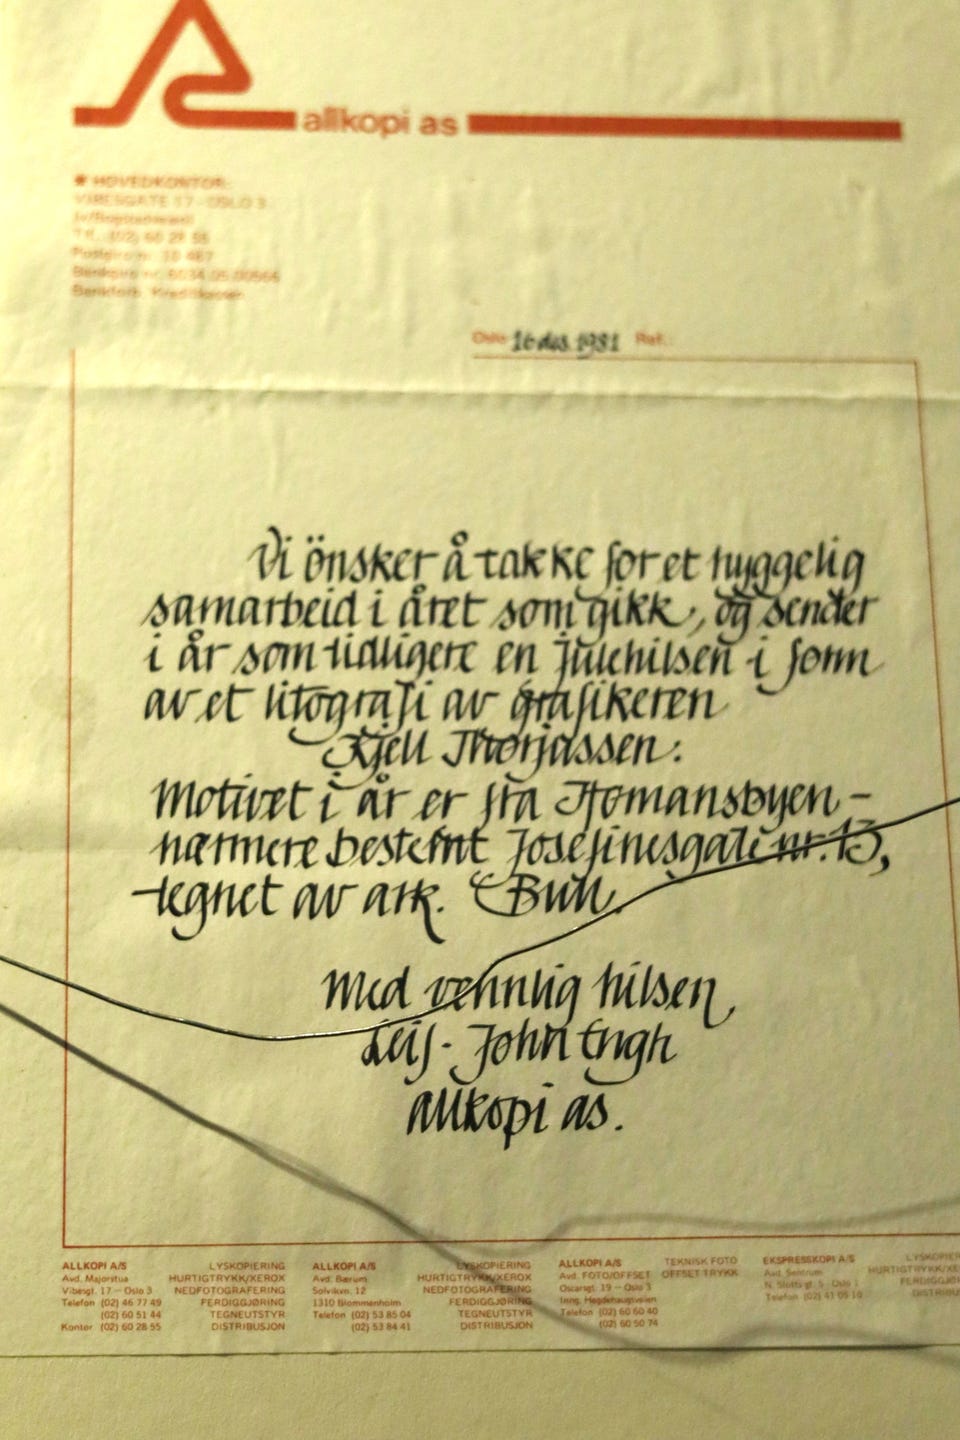 allkopi as
HOVEDKONTOR:
VIBESGATE 17 - OSLO 3
Tlf. (02) 60 28 55
Postgiro nr.
Bankgiro nr.
Oslo 16 des. 1981 Ref.:
Vi önsker å takke for et hyggelig
samarbeid i året som gikk, og sender
i år som tidligere en julehilsen i form
av et litografi av grafikeren
Kjell Thorjussen.
Motivet i år er fra Homansbyen -
nærmere bestemt Josefinesgate nr. 13,
tegnet av ark. Bull.
Med vennlig hilsen,
Leif-John Engh
allkopi as.
ALLKOPI A/S LYSKOPIERING ALLKOPI A/S LYSKOPIERING ALLKOPI A/S TEKNISK FOTO EKSPRESSKOPI A/S LYSKOPIERING
Avd. Majorstua HURTIGTRYKK/XEROX Avd. Bærum HURTIGTRYKK/XEROX Avd. FOTO/OFFSET OFFSET TRYKK Avd. Sentrum
Vibesgt. 17 - Oslo 3 NEDFOTOGRAFERING Solvikvn. 12 NEDFOTOGRAFERING Oscarsgt. 19 - Oslo 3 N. Slotts gt. 5 - Oslo 1
Telefon (02) 46 77 49 FERDIGGJØRING 1310 Blommenholm FERDIGGJØRING Inng. Hegdehaugsveien Telefon (02) 41 05 10
(02) 60 51 44 TEGNEUTSTYR Telefon (02) 53 85 04 TEGNEUTSTYR Telefon (02) 60 60 40
Kontor (02) 60 28 55 DISTRIBUSJON (02) 53 84 41 DISTRIBUSJON (02) 60 50 74